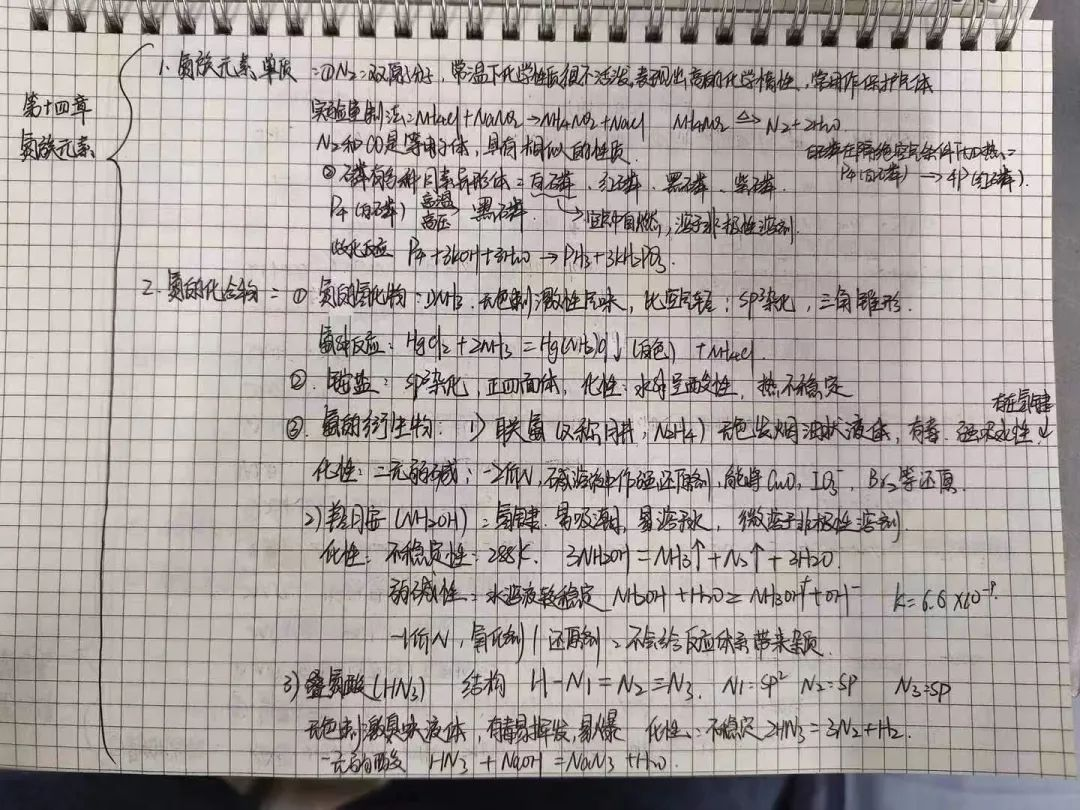 第十四章
氮族元素
1. 氮族元素单质 = ① N2 = 双原子分子, 常温下化学性质很不活泼, 表现出高的化学惰性, 常用作保护气体
实验室制法 = NH4Cl + NaNO2 → NH4NO2 + NaCl NH4NO2 △= N2 + 2H2O
N2和CO是等电子体, 具有相似的性质.
白磷在隔绝空气条件下加热 =
P4(白磷) → 4P(红磷).
② 磷有多种同素异形体 = 白磷、红磷、黑磷、紫磷.
P4(白磷) 高温 高压 → 黑磷. → 空气中自燃, 溶于非极性溶剂.
歧化反应 P4 + 3KOH + 3H2O → PH3 + 3KH2PO3.
2. 氮的化合物 = ① 氮的氢化物: 1) NH3. 无色刺激性气味, 比空气轻; SP杂化, 三角锥形.
氨解反应: HgCl2 + 2NH3 = Hg(NH2)Cl↓ (白色) + NH4Cl.
②. 铵盐: SP杂化, 正四面体, 化性: 水解呈酸性, 热不稳定
③. 氨的衍生物: 1) 联氨 (又称肼, N2H4) 无色发烟油状液体, 有毒. 强吸水性,
存在氢键
化性: 二元弱碱; -2价N, 碱溶液中作强还原剂, 能将CuO, IO3-, Br2等还原.
2) 羟胺 (NH2OH) = 氢键. 易吸潮, 易溶于水, 微溶于非极性溶剂.
化性: 不稳定性: 288K. 3NH2OH = NH3↑ + N2↑ + 3H2O.
弱碱性 = 水溶液较稳定 NH2OH + H2O = NH3OH+ + OH- K=6.6×10-9.
-1价N, 氧化剂 / 还原剂 = 不会给反应体系带来杂质
3) 叠氮酸 (HN3) 结构 H-N1=N2≡N3. N1=SP2 N2=SP N3=SP
无色刺激臭味液体, 有毒易挥发, 易爆 化性: 不稳定 2HN3 = 3N2 + H2.
一元弱酸 HN3 + NaOH = NaN3 + H2O.